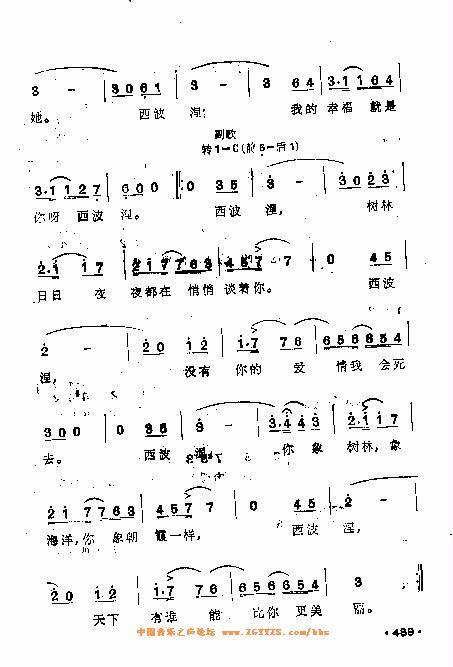 3 - | 3 0 6 1 | 3 - | 3 6 4 | 3·1 1 6 4 |
她。 西波涅; 我的 幸福 就是
副歌
转1=C(前5=后1)
3·1 1 2 7 | 6 0 0 :‖: 0 3 5 | 3 - | 3 0 2 3 |
你呀 西波 涅。 西波 涅, 树林
2·1 1 7 | 2 1 7 7 6 3 | 4 5 7 7 - | 0 4 5 |
日日 夜 夜都在 悄悄 谈着你。 西波
2 - | 2 0 1 2 | 1·7 7 6 | 6 5 6 6 5 4 |
涅, 没有 你的 爱 情我 会死
3 0 0 | 0 3 5 | 3 - | 3·4 4 3 | 2·1 1 7 |
去。 西波 涅, 你象 树林,象
2 1 7 7 6 3 | 4 5 7 7 | 0 4 5 | 2 - |
海洋,你 象朝 霞一样, 西波 涅,
2 0 1 2 | 1·7 7 6 | 6 5 6 6 5 4 | 3 - :‖
天下 有谁 能 比你 更美 丽。
中国音乐之声论坛 - www.ZGYYZS.com/bbs
·489·